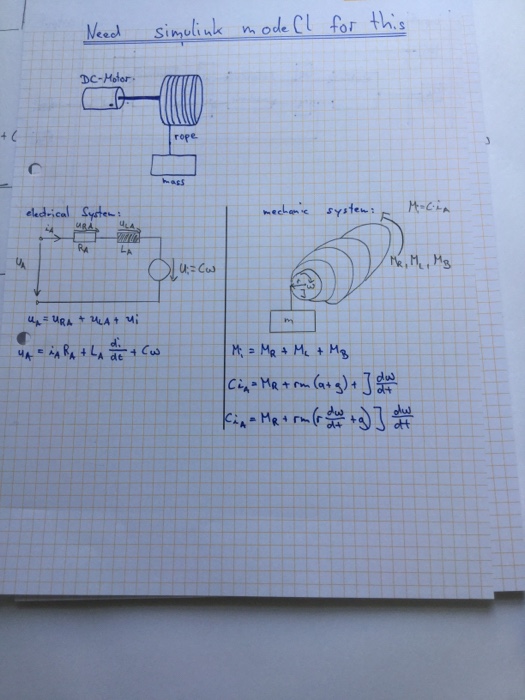 Need simulink modell for this
DC-Motor
rope
mass
electrical System:
iA
uRA
uLA
RA
LA
uA
ui = Cω
uA = uRA + uLA + ui
uA = iA RA + LA di/dt + Cω
mechanic system:
M = C·iA
MR, ML, MB
r
ω
m
Mi = MR + ML + MB
CiA = MR + rm(a+g) + J dω/dt
CiA = MR + rm(r dω/dt + g) J dω/dt